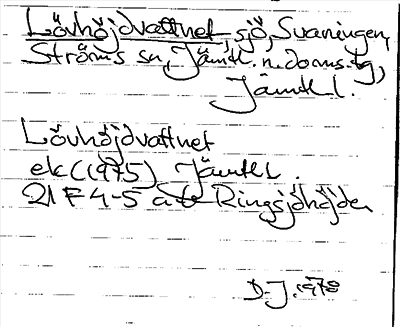 Lövhöjdvattnet, sjö, Svaningen,
Ströms sn, Jämtl. n. doms.tg,
Jämtl l.
Lövhöjdvattnet
ek (1975) Jämtl l.
21 F 4-5 a Ringsjöhöjden
D.J. 1978